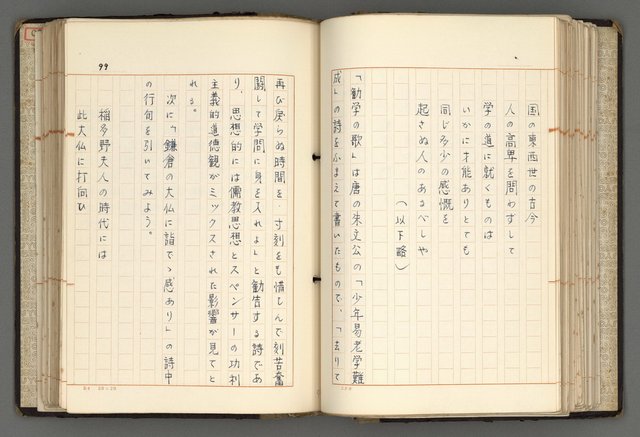 国の東西世の古今
人の高卑を問わずして
学の道に就くものは
いかに才能ありとても
同じ多少の感慨を
起さぬ人のあるべしや
（以下略）
「勧学の歌」は唐の朱文公の「少年易老学難
成」の詩をふまえて書いたもので、「去りて
99
再び戻らぬ時間を、寸刻をも惜しんで刻苦奮
闘して学問に身を入れよ」と勧告する詩であ
り、思想的には儒教思想とスペンサーの功利
主義的道徳観がミックスされた影響が見てと
れる。
次に「鎌倉の大仏に詣でゝ感あり」の詩中
の行句を引いてみよう。
稲多野夫人の時代には
此大仏に打向ひ